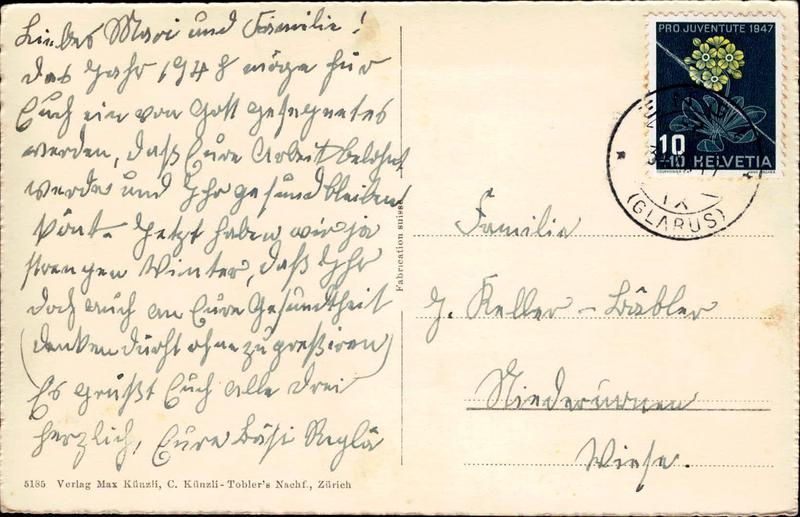 Liebes Mari und Familie!
Das Jahr 1948 möge für
Euch ein von Gott gesegnetes
werden, daß Eure Arbeit belohnt
werde und Ihr gesund bleiben
könt. Jetzt haben wir ja
strengen Winter, daß Ihr
doch auch an Eure Gesundheit
(denken dürft ohne zu pressiren)
Es grüßt Euch alle drei
herzlich, Eure Bäsi Reglä
5185 Verlag Max Künzli, C. Künzli-Tobler's Nachf., Zürich
Fabrication suisse
PRO JUVENTUTE 1947
10
+10 HELVETIA
IX
(GLARUS)
Familie
J. Keller-Bäbler
Niederurnen
Wiese.